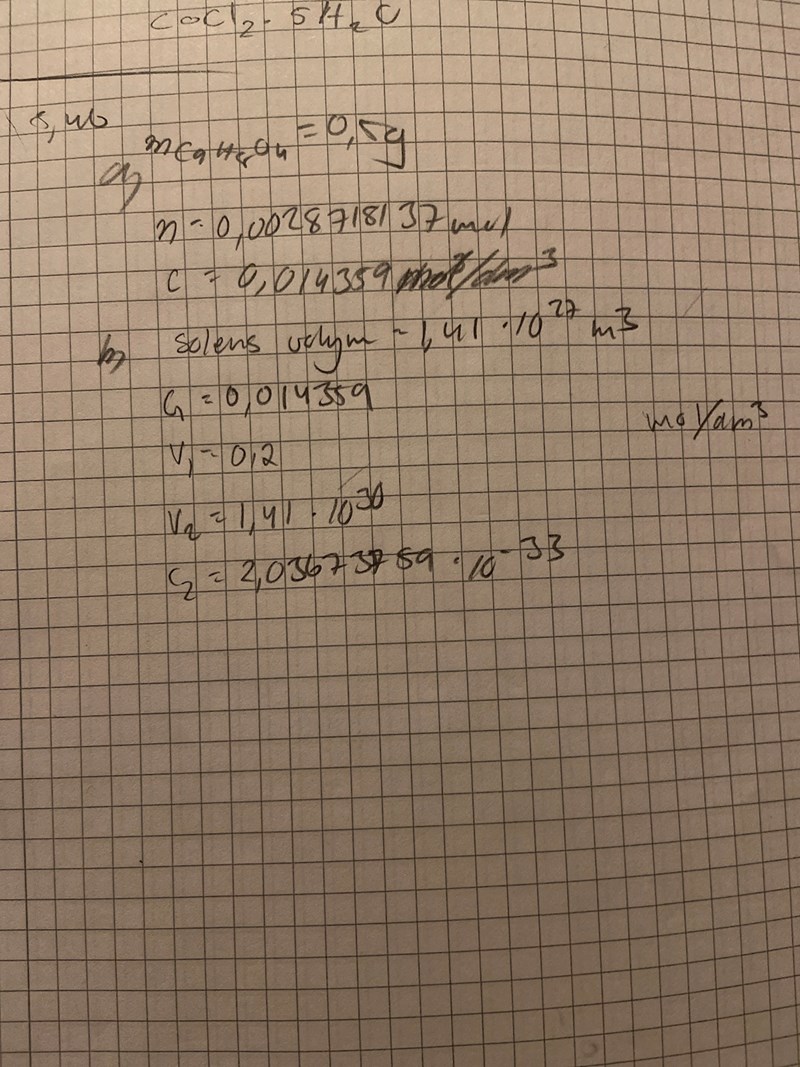 CoCl2 · 5H2O
8,46
a) mC9H8O4 = 0,5g
n = 0,0028718137 mol
c = 0,014359 mol/dm3
b) Solens volym = 1,41 · 10^27 m3
C1 = 0,014359
mol/dm3
V1 = 0,2
V2 = 1,41 · 10^30
C2 = 2,03673759 · 10^-33